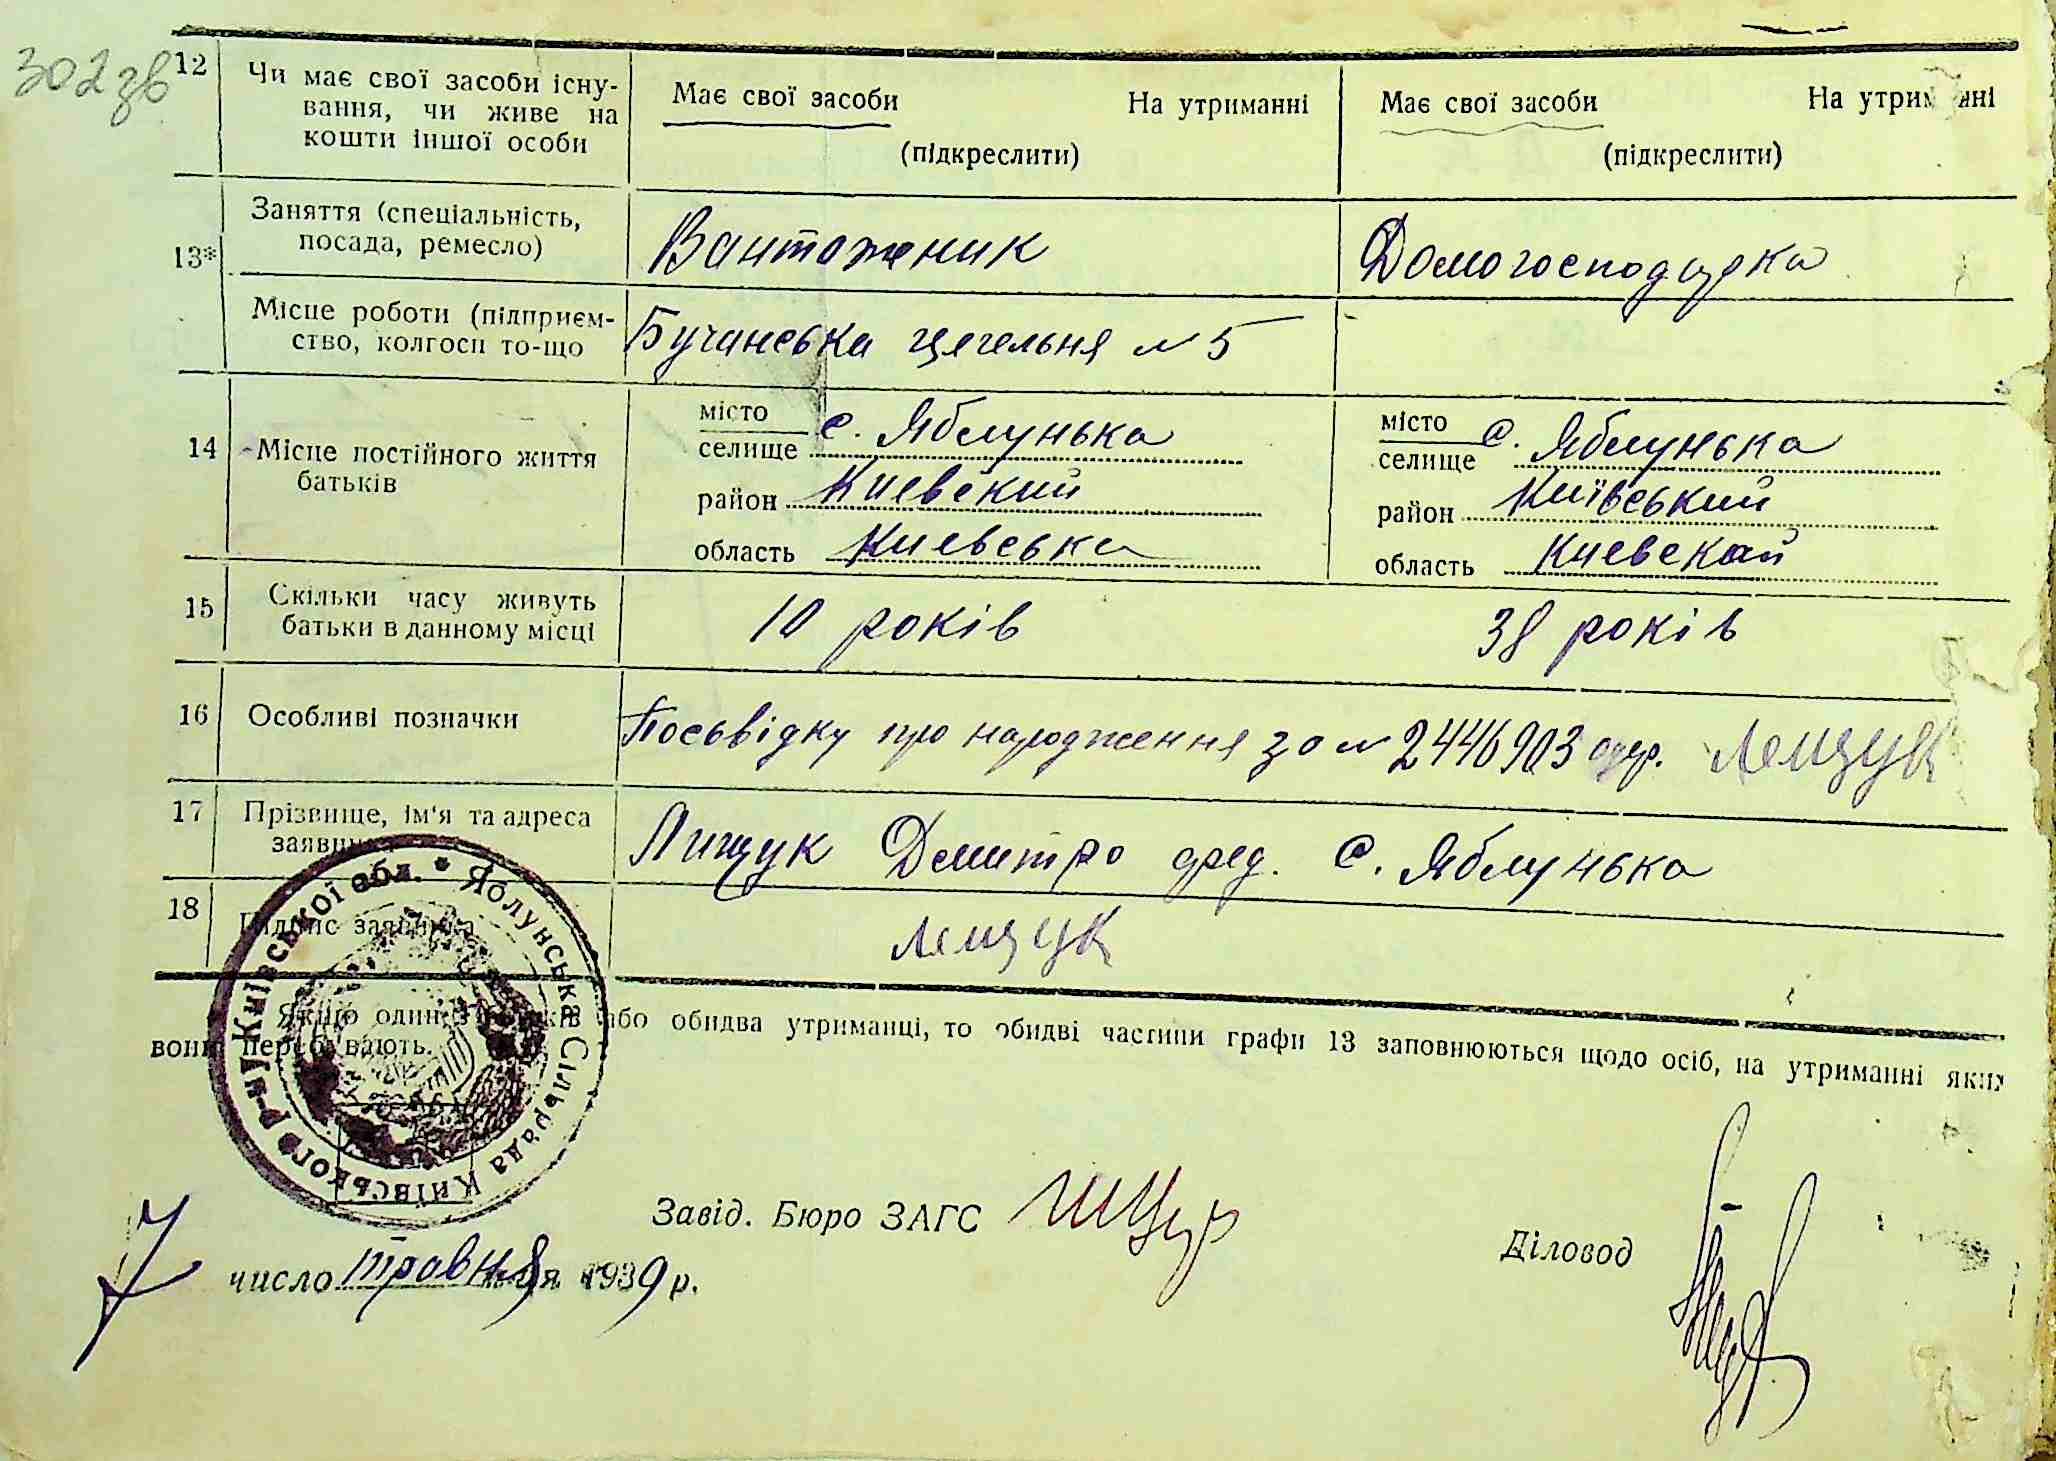 302зв
12 Чи має свої засоби існу-
вання, чи живе на
кошти іншої особи
Має свої засоби На утриманні
(підкреслити)
Має свої засоби На утриманні
(підкреслити)
13* Заняття (спеціальність,
посада, ремесло)
Вантажник
Домогосподарка
Місце роботи (підприєм-
ство, колгосп то-що
Бучанська цегельня № 5
14 Місце постійного життя
батьків
місто
селище с. Яблунька
район Киевский
область Киевська
місто
селище с. Яблунька
район Київський
область Киевской
15 Скільки часу живуть
батьки в данному місці
10 років
38 років
16 Особливі позначки
Посьвідку про народження за № 2446903 одер. Лещук
17 Прізвище, ім'я та адреса
заявника
Лищук Дмитро с. Яблунька
18 Підпис заявника
Лещук
Якщо один з батьків або обидва утриманці, то обидві частини графи 13 заповнюються щодо осіб, на утриманні яких
вони перебувають.
Яблунська Сільрада Київського р-ну Київської обл.
Завід. Бюро ЗАГС
Діловод
7 число травня 1939 р.